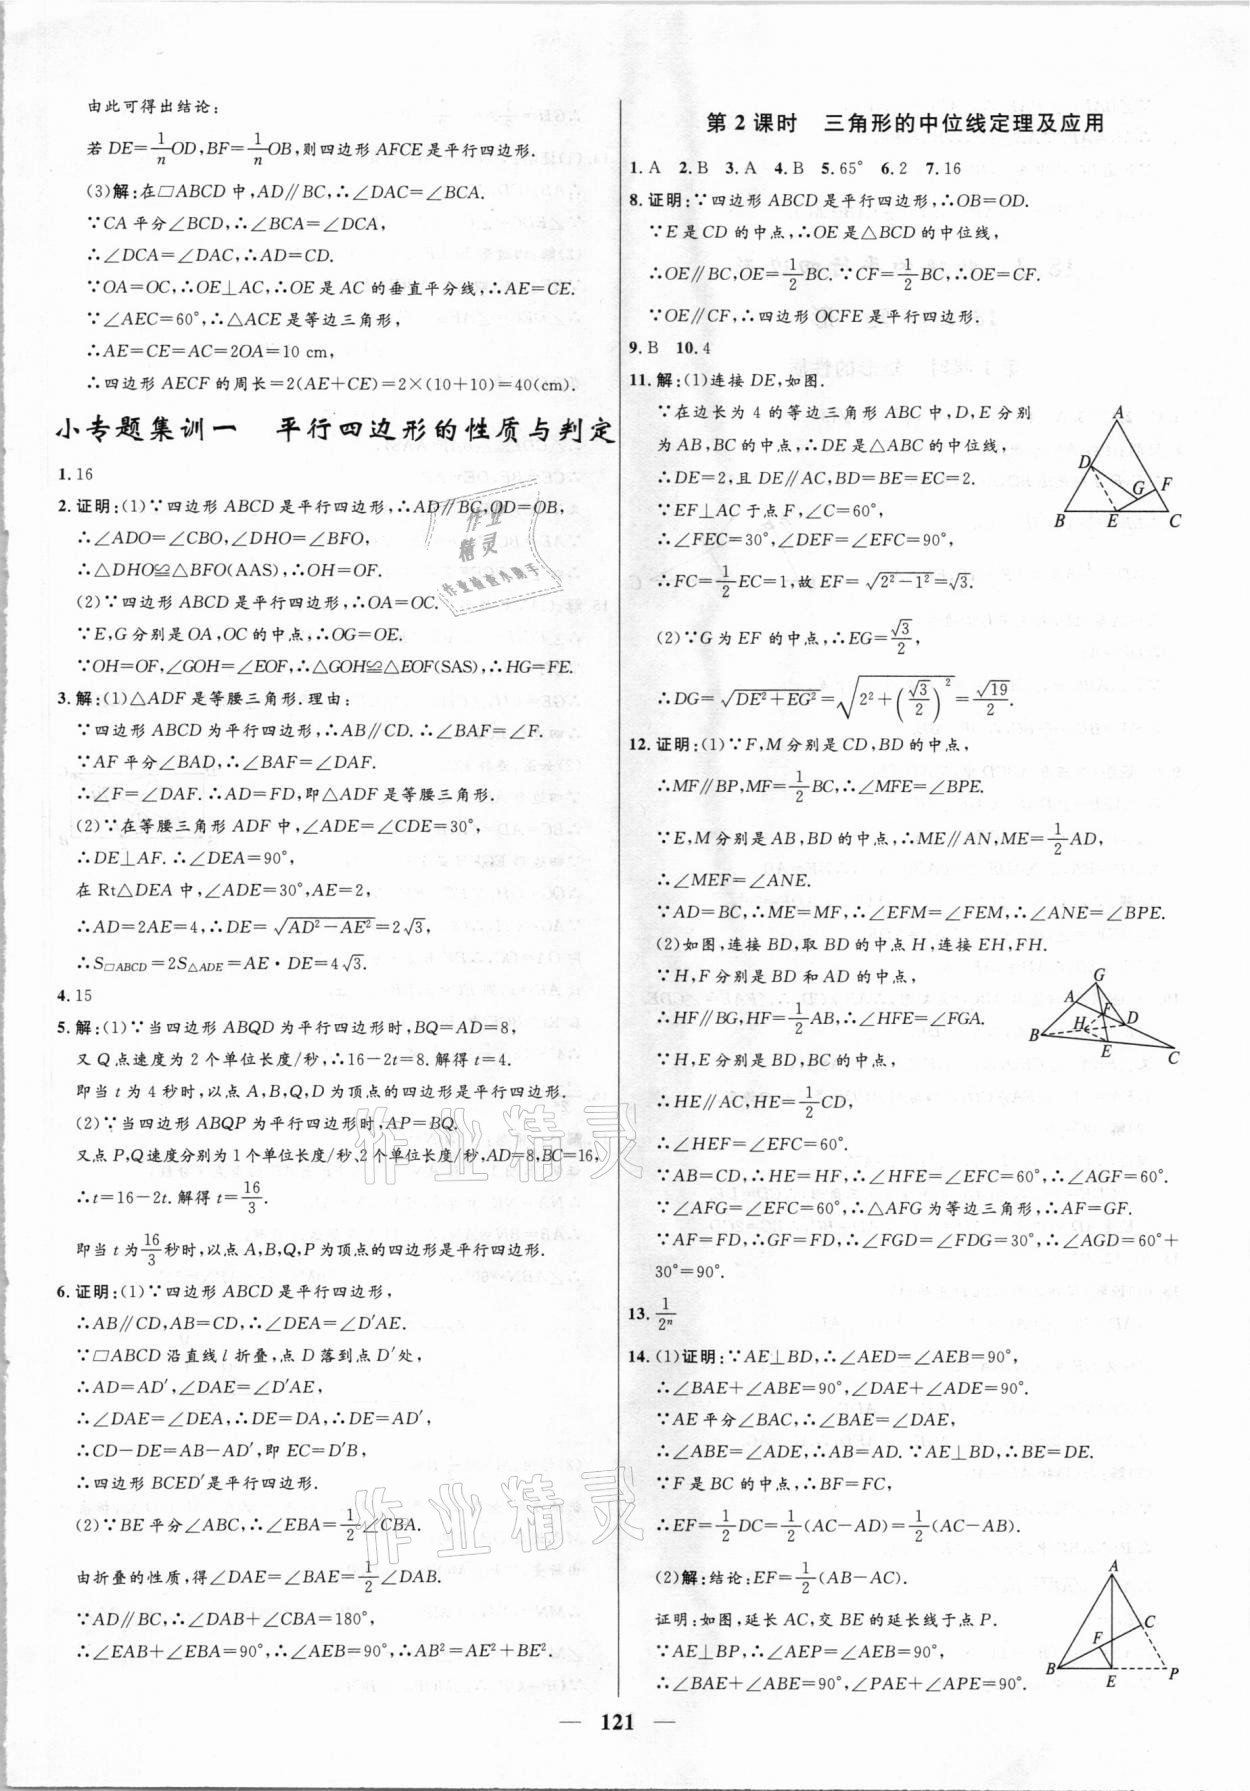 由此可得出结论:
若 DE=1/n OD,BF=1/n OB,则四边形 AFCE 是平行四边形.
(3)解:在□ABCD 中,AD∥BC,∴∠DAC=∠BCA.
∵CA 平分∠BCD,∴∠BCA=∠DCA,
∴∠DCA=∠DAC,∴AD=CD.
∵OA=OC,∴OE⊥AC,∴OE 是 AC 的垂直平分线,∴AE=CE.
∵∠AEC=60°,∴△ACE 是等边三角形,
∴AE=CE=AC=2OA=10 cm,
∴四边形 AECF 的周长=2(AE+CE)=2×(10+10)=40(cm).
小专题集训一 平行四边形的性质与判定
1.16
2.证明:(1)∵四边形 ABCD 是平行四边形,∴AD∥BC,OD=OB,
∴∠ADO=∠CBO,∠DHO=∠BFO,
∴△DHO≌△BFO(AAS),∴OH=OF.
(2)∵四边形 ABCD 是平行四边形,∴OA=OC.
∵E,G 分别是 OA,OC 的中点,∴OG=OE.
∵OH=OF,∠GOH=∠EOF,∴△GOH≌△EOF(SAS),∴HG=FE.
3.解:(1)△ADF 是等腰三角形.理由:
∵四边形 ABCD 为平行四边形,∴AB∥CD.∴∠BAF=∠F.
∵AF 平分∠BAD,∴∠BAF=∠DAF.
∴∠F=∠DAF.∴AD=FD,即△ADF 是等腰三角形.
(2)∵在等腰三角形 ADF 中,∠ADE=∠CDE=30°,
∴DE⊥AF.∴∠DEA=90°,
在 Rt△DEA 中,∠ADE=30°,AE=2,
∴AD=2AE=4,∴DE=√(AD²−AE²)=2√3,
∴S□ABCD=2S△ADE=AE·DE=4√3.
4.15
5.解:(1)∵当四边形 ABQD 为平行四边形时,BQ=AD=8,
又 Q 点速度为 2 个单位长度/秒,∴16−2t=8.解得 t=4.
即当 t 为 4 秒时,以点 A,B,Q,D 为顶点的四边形是平行四边形.
(2)∵当四边形 ABQP 为平行四边形时,AP=BQ.
又点 P,Q 速度分别为 1 个单位长度/秒、2 个单位长度/秒,AD=8,BC=16,
∴t=16−2t.解得 t=16/3.
即当 t 为16/3秒时,以点 A,B,Q,P 为顶点的四边形是平行四边形.
6.证明:(1)∵四边形 ABCD 是平行四边形,
∴AB∥CD,AB=CD,∴∠DEA=∠D′AE.
∵□ABCD 沿直线 l 折叠,点 D 落到点 D′处,
∴AD=AD′,∠DAE=∠D′AE,
∴∠DAE=∠DEA,∴DE=DA,∴DE=AD′,
∴CD−DE=AB−AD′,即 EC=D′B,
∴四边形 BCED′是平行四边形.
(2)∵BE 平分∠ABC,∴∠EBA=1/2∠CBA.
由折叠的性质,得∠DAE=∠BAE=1/2∠DAB.
∵AD∥BC,∴∠DAB+∠CBA=180°,
∴∠EAB+∠EBA=90°,∴∠AEB=90°,∴AB²=AE²+BE².
第 2 课时 三角形的中位线定理及应用
1.A 2.B 3.A 4.B 5.65° 6.2 7.16
8.证明:∵四边形 ABCD 是平行四边形,∴OB=OD.
∵E 是 CD 的中点,∴OE 是△BCD 的中位线,
∴OE∥BC,OE=1/2BC.∵CF=1/2BC,∴OE=CF.
∵OE∥CF,∴四边形 OCFE 是平行四边形.
9.B 10.4
11.解:(1)连接 DE,如图.
∵在边长为 4 的等边三角形 ABC 中,D,E 分别
为 AB,BC 的中点,∴DE 是△ABC 的中位线,
∴DE=2,且 DE∥AC,BD=BE=EC=2.
∵EF⊥AC 于点 F,∠C=60°,
∴∠FEC=30°,∠DEF=∠EFC=90°,
∴FC=1/2EC=1,故 EF=√(2²−1²)=√3.
(2)∵G 为 EF 的中点,∴EG=√3/2,
∴DG=√(DE²+EG²)=√(2²+(√3/2)²)=√19/2.
A
D
G
F
B
E
C
12.证明:(1)∵F,M 分别是 CD,BD 的中点,
∴MF∥BP,MF=1/2BC,∴∠MFE=∠BPE.
∵E,M 分别是 AB,BD 的中点,∴ME∥AN,ME=1/2AD,
∴∠MEF=∠ANE.
∵AD=BC,∴ME=MF,∴∠EFM=∠FEM,∴∠ANE=∠BPE.
(2)如图,连接 BD,取 BD 的中点 H,连接 EH,FH.
∵H,F 分别是 BD 和 AD 的中点,
∴HF∥BG,HF=1/2AB,∴∠HFE=∠FGA.
∵H,E 分别是 BD,BC 的中点,
∴HE∥AC,HE=1/2CD,
∴∠HEF=∠EFC=60°.
∵AB=CD,∴HE=HF,∴∠HFE=∠EFC=60°,∴∠AGF=60°.
∵∠AFG=∠EFC=60°,∴△AFG 为等边三角形,∴AF=GF.
∵AF=FD,∴GF=FD,∴∠FGD=∠FDG=30°,∴∠AGD=60°+
30°=90°.
G
A
F
H
D
B
E
C
13.1/2ⁿ
14.(1)证明:∵AE⊥BD,∴∠AED=∠AEB=90°,
∴∠BAE+∠ABE=90°,∠DAE+∠ADE=90°.
∵AE 平分∠BAC,∴∠BAE=∠DAE,
∴∠ABE=∠ADE,∴AB=AD.∵AE⊥BD,∴BE=DE.
∵F 是 BC 的中点,∴BF=FC,
∴EF=1/2DC=1/2(AC−AD)=1/2(AC−AB).
(2)解:结论:EF=1/2(AB−AC).
证明:如图,延长 AC,交 BE 的延长线于点 P.
∵AE⊥BP,∴∠AEP=∠AEB=90°,
∴∠BAE+∠ABE=90°,∠PAE+∠APE=90°.
A
C
F
B
E
P
— 121 —
作业精灵
作业检查小助手
作业精灵
作业精灵